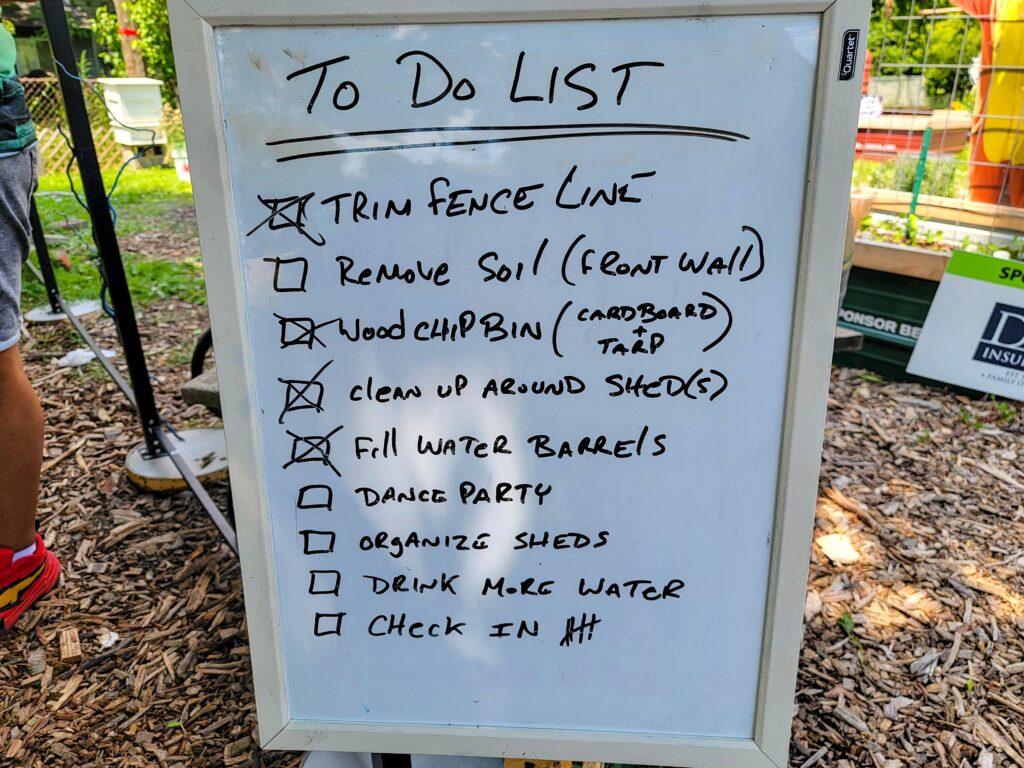 Quartet
TO DO LIST
TRIM FENCE LINE
Remove Soil (FRONT WAll)
WOOD CHIP BIN (CARDBOARD + TARP)
CLEAN UP AROUND SHED(S)
Fill WATER BARRELS
DANCE PARTY
ORGANIZE SHEDS
DRINK MORE WATER
CHECK IN
SP
INSU
EST
FAMILY O
PONSOR BE